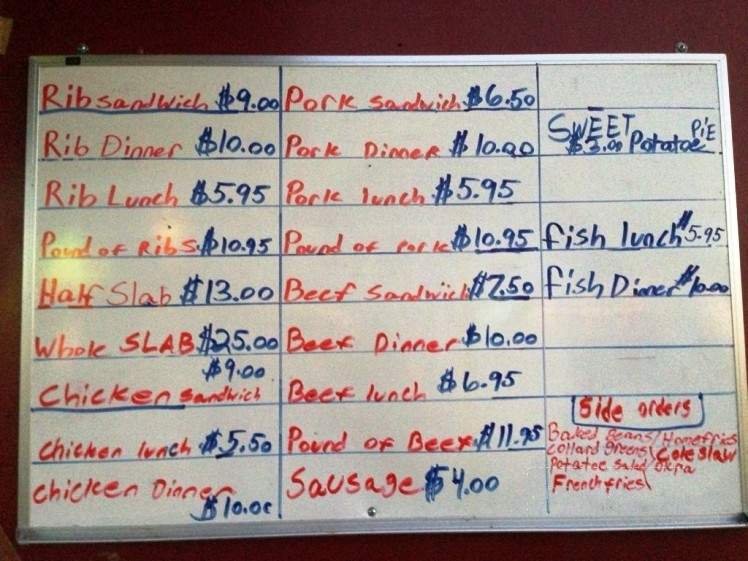 Rib sandwich $9.00
Rib Dinner $10.00
Rib Lunch $5.95
Pound of Ribs $10.95
Half Slab $13.00
Whole SLAB $25.00
$9.00
Chicken sandwich
chicken lunch $5.50
chicken Dinner
$10.00
Pork sandwich $6.50
Pork Dinner $10.00
Pork lunch $5.95
Pound of Pork $10.95
Beef sandwich $7.50
Beef Dinner $10.00
Beef lunch $6.95
Pound of Beef $11.95
Sausage $4.00
SWEET PiE
$3.00 Potatoe
fish lunch $5.95
fish Dinner $10.00
Side orders
Baked Beans/Homefries
collard greens/Cole Slaw
Potatoe Salad/okra
Frenchfries\